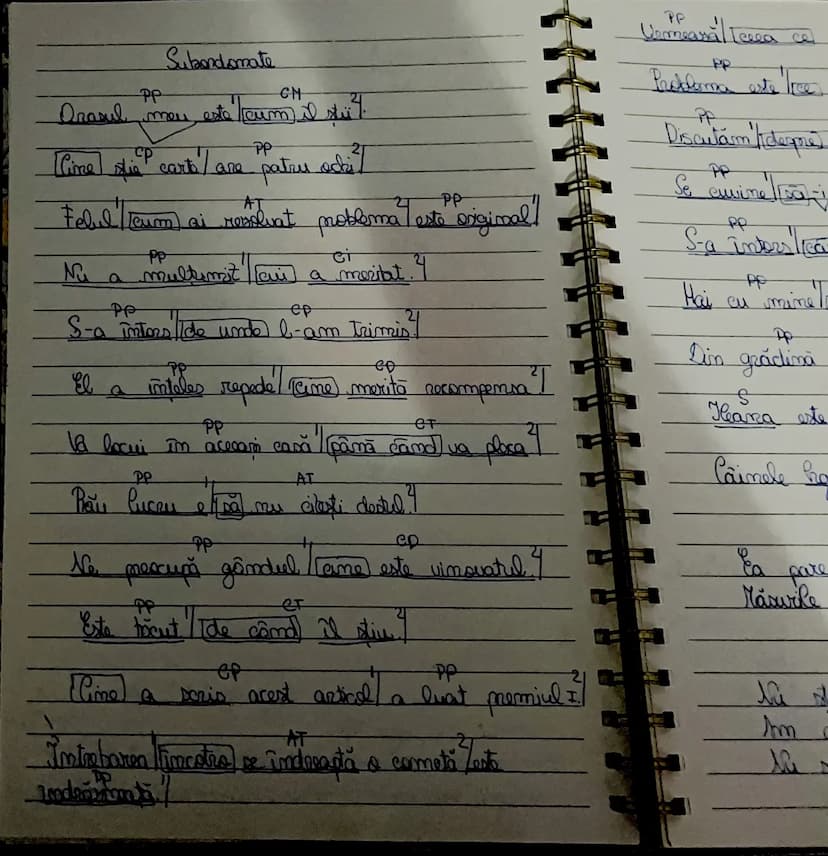 Subordonate
PP CM
Orașul meu este 1/ cum îl știi 2/.
CP PP
Cine știe carte 1/ are patru ochi 2/
AT PP
Felul 1/ cum ai rezolvat problema 2/ este original 1/
PP CI
Nu a mulțumit 1/ cui a meritat. 2/
PP CP
S-a întors 1/ de unde l-am trimis 2/
PP CD
El a înțeles repede 1/ cine merită recompensa 2/
PP CT
Va locui în aceeași casă 1/ până când va pleca 2/
PP AT
Rău lucru e 1/ să nu citești destul. 2/
PP CD
Ne preocupă gândul 1/ cine este vinovatul. 2/
PP CT
Este tăcut 1/ de când îl știu. 2/
CP PP
Cine a scris acest articol 1/ a luat premiul I. 2/
AT
Întrebarea 1/ încotro se îndreaptă o cometă 2/ este
PP
PP
Urmează 1/ ceea ce
PP
Problema este 1/ ce
PP
Discutăm 1/ despre
PP
Se cuvine 1/ să-i
PP
S-a întors 1/ că
PP
Hai cu mine 1/
PP
Din grădină
S
Ileana este
Câinele
Ea pare
Măsurile
Nu
Am
Nu